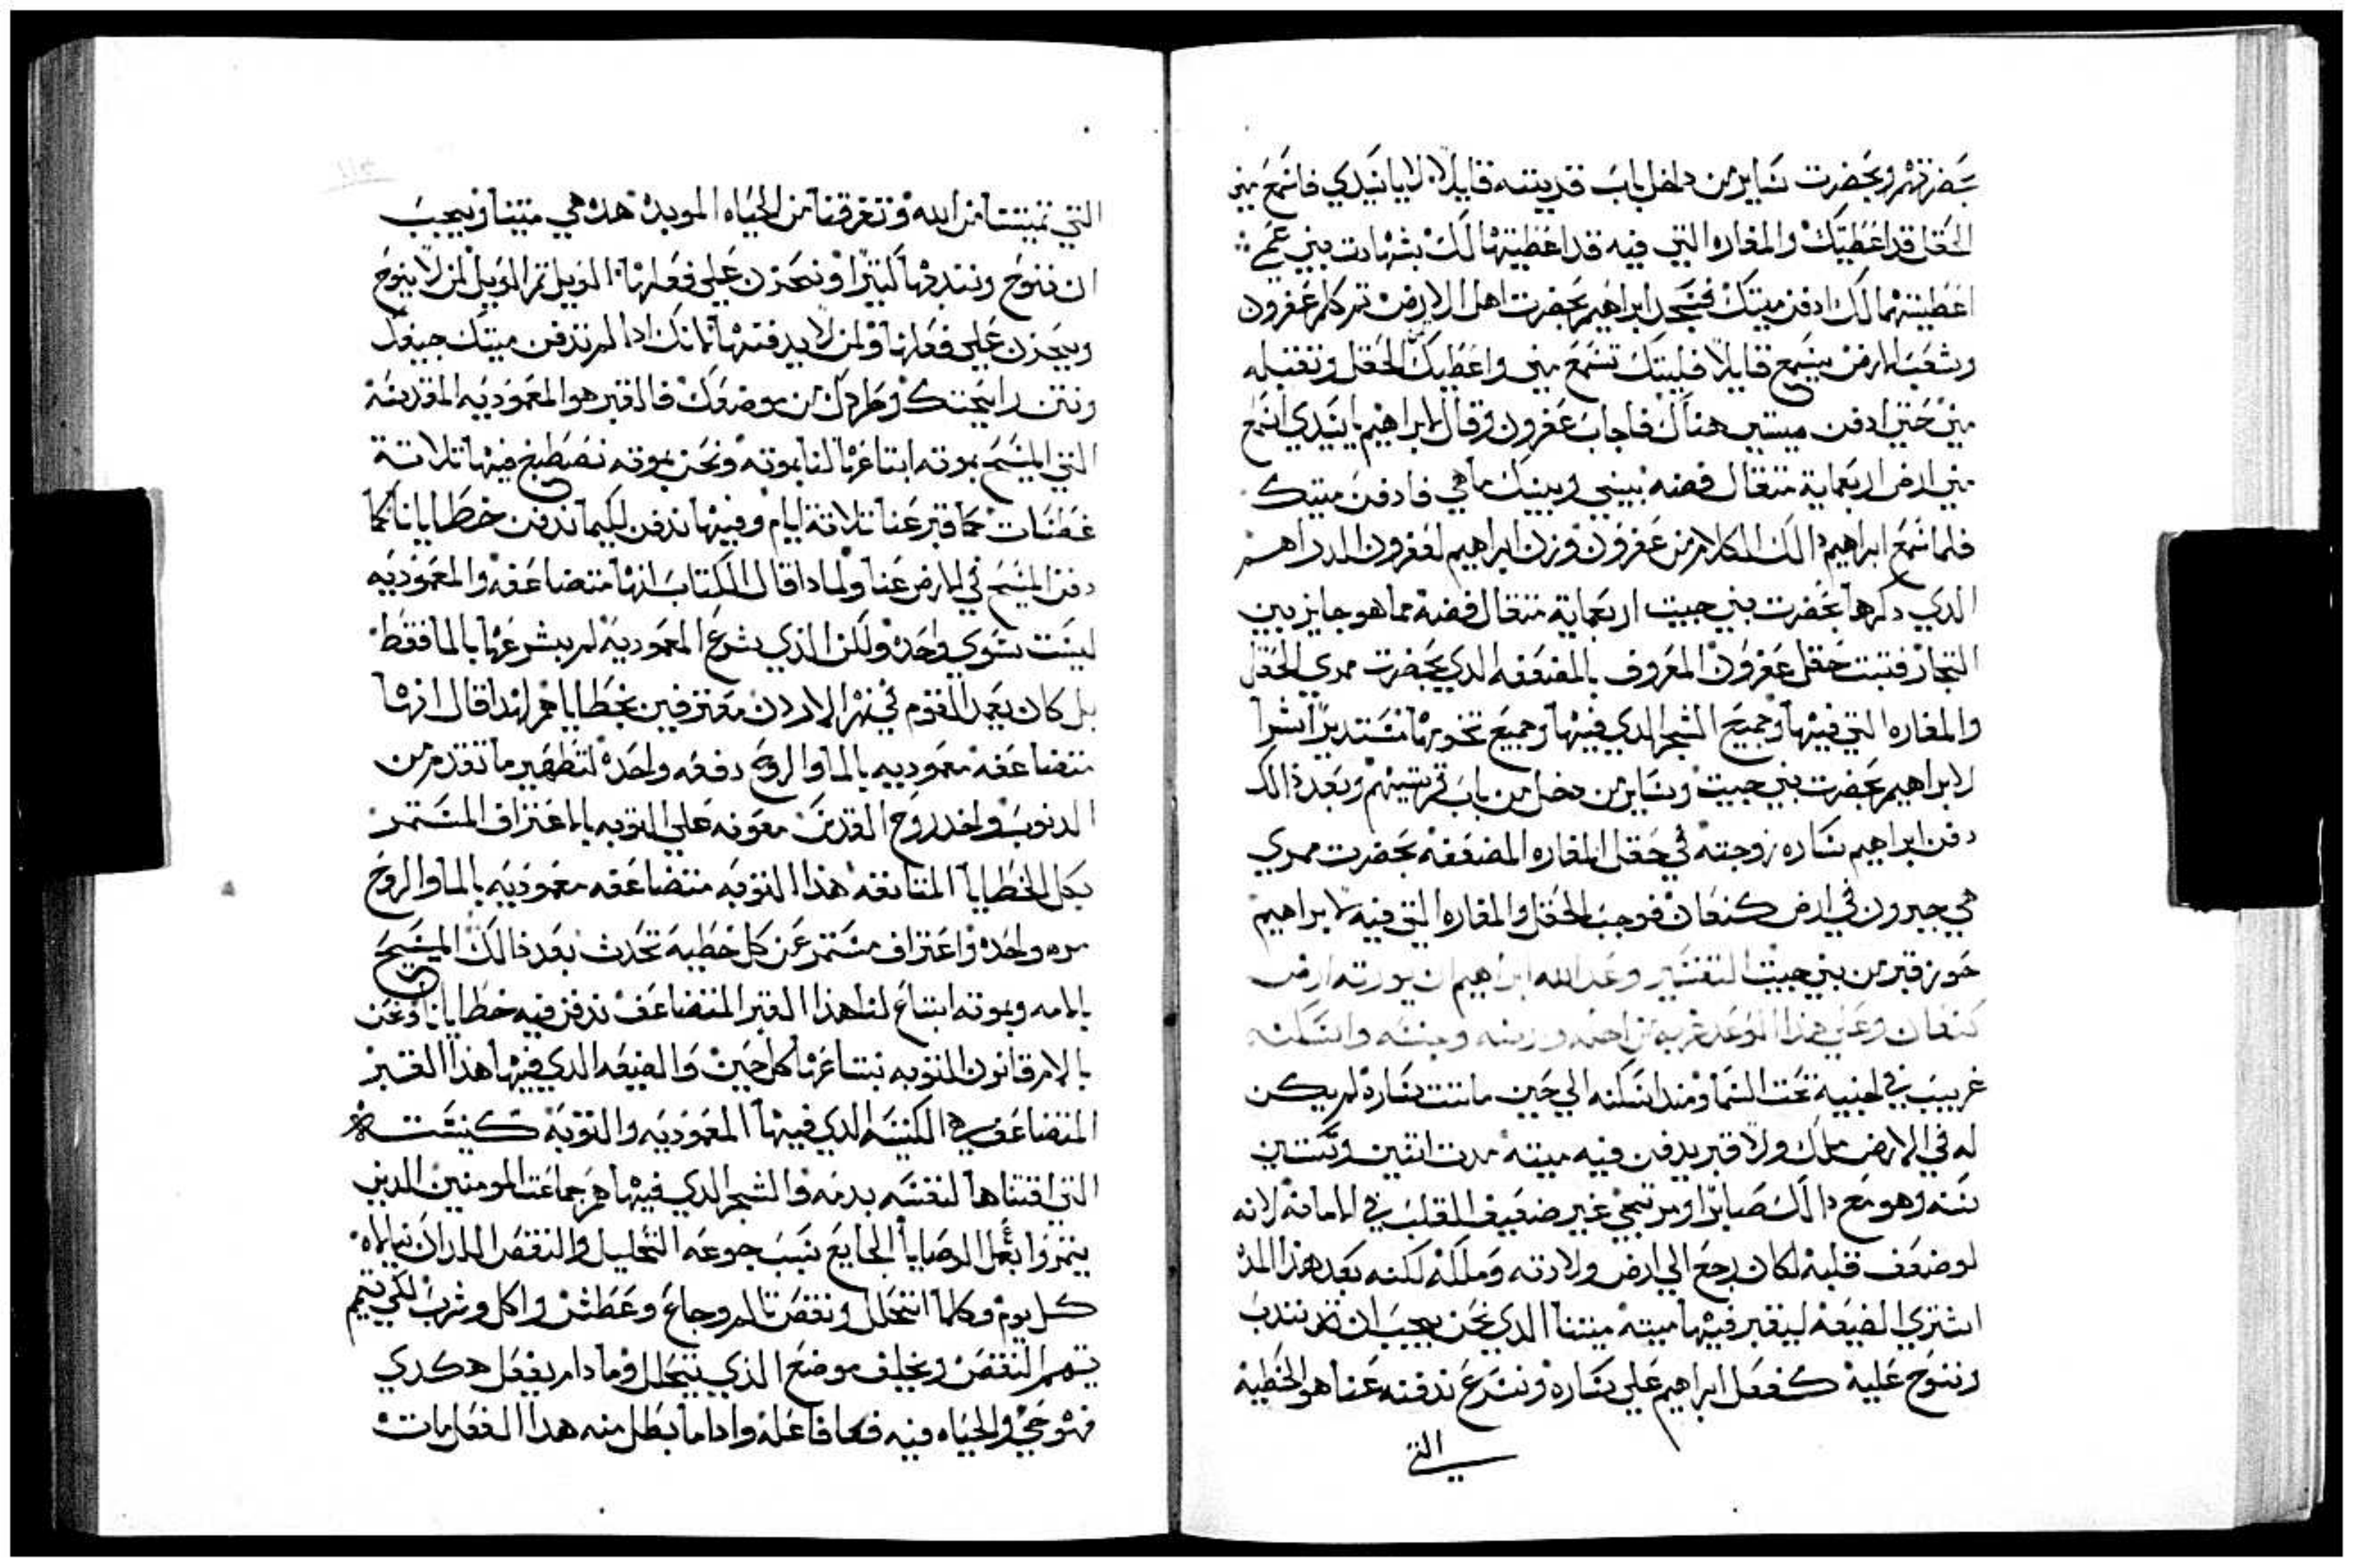 بحضرتهم وبحضرت ساير من دخل باب قدينته قايلا لا يا سيدي فاسمع مني
الحقل قد اعطيتك والمغاره التي فيه قد اعطيتها لك بشهادت بني عمي
اعطيتهما لك ادفن ميتك فسجد ابراهيم بحضرت اهل الارض تم كلم عفرون
وشعب الارض يسمع قايلا فليتك تسمع مني واعطيك الحقل وتقبله
مني حتي ادفن ميتتي هناك فاجاب عفرون وقال لابراهيم يا سيدي اسمع
مني ارض اربعماية متقال فضه بيني وبينك ما هي فادفن ميتك
فلما سمع ابراهيم دالك الكلام من عفرون وزن ابراهيم لعفرون الدراهم
الدي دكرها بحضرت بني حيت اربعماية متقال فضة مما هو جايز بين
التجار فتبت حقل عفرون المعروف بالمضعفه الدي بحضرت ممري الحقل
والمغاره التي فيها وجميع الشجر الدي فيها وجميع تخومها مستديرا شرا
لابراهيم بحضرت بني حيت وساير من دخل من باب قريتهم وبعد ذالك
دفن ابراهيم ساره زوجته في حقل المغاره المضعفه بحضرت ممري
هي حبرون في ارض كنعان فوجب الحقل والمغاره التي فيه لابراهيم
حوز قبر من بني حيت التفسير وعد الله ابراهيم ان يورته ارض
كنعان وعلي هذا الوعد غربه من ارضه وجنسه واسكنه
غريب في اخبية تحت السما ومند اسكنه الي حين ماتت ساره لم يكن
له في الارض ملك ولا قبر يدفن فيه ميته مدت اتنين وستين
سنه وهو مع دالك صابرا ومرتجي غير ضعيف القلب في الامانه لانه
لو ضعف قلبه لكان رجع الي ارض ولادته وملكه لكنه بعد هذا المده
اشتري الضيعه ليقبر فيها ميته ميتنا الدي نحن يجب ان نندب
وننوح عليه كفعل ابراهيم علي ساره ونسرع ندفنه عنا هو الخطيه
التي
التي تميتنا من الله وتغرقنا من الحياه الموبده هده هي ميتنا ويجب
ان ننوح ونندبها كتيرا ونحزن علي فعلها الويل تم الويل لمن لا ينوح
ويحزن علي فعلها ولمن لا يدفنها لانك ادا لم تدفن ميتك جيفك
ونتن رايحتك وطردك من موضعك فالقبر هو المعموديه المقدسه
التي المسيح بموته ابتاعها لنا بموته ونحن بموته نصطبغ فيها تلاتة
غطسات كما قبر عنا تلاتة ايام وفيها ندفن لكيما ندفن خطايانا كما
دفن المسيح في الارض عنا ولمادا قال الكتاب انها متضاعفه والمعموديه
ليست سوي واحده ولكن الذي يشرع المعمودية لم يشرعها بالما فقط
بل كان يعمد القوم في نهر الاردن معترفين بخطاياهم لهدا قال انها
متضاعفه معموديه بالما والروح دفعه واحده لتطهير ما تقدم من
الدنوب واخد روح القدس معونه علي التوبه بالاعتراف المستمر
بكل الخطايا المتابعه هذا التوبه متضاعفه معموديه بالما والروح
مره واحده واعتراف مستمر عن كل خطيه تحدت بعد ذالك المسيح
بالامه وبموته ابتاع لنا هذا القبر المتضاعف ندفن فيه خطايانا ونحن
بالام قانون التوبه نبتاعها كل حين والضيعه الدي فيها هذا القبر
المتضاعف هي الكنيسه الدي فيها المعموديه والتوبه كنيسته
التي اقتناها لنفسه بدمه والشجر الدي فيها هم جماعت المومنين الدين
يتمروا بعمل الوصايا الجايع بسبب جوعه التحليل والنقص المدان
كل يوم وكلما اتحلل ونقص تالم وجاع وعطش واكل وشرب لكي يتمم
يتمم النقص ويخلف موضع الذي يتحلل وما دام يفعل هكدي
فهو حي والحياه فيه فكافاعله وادا ما بطل منه هدا الفعل مات